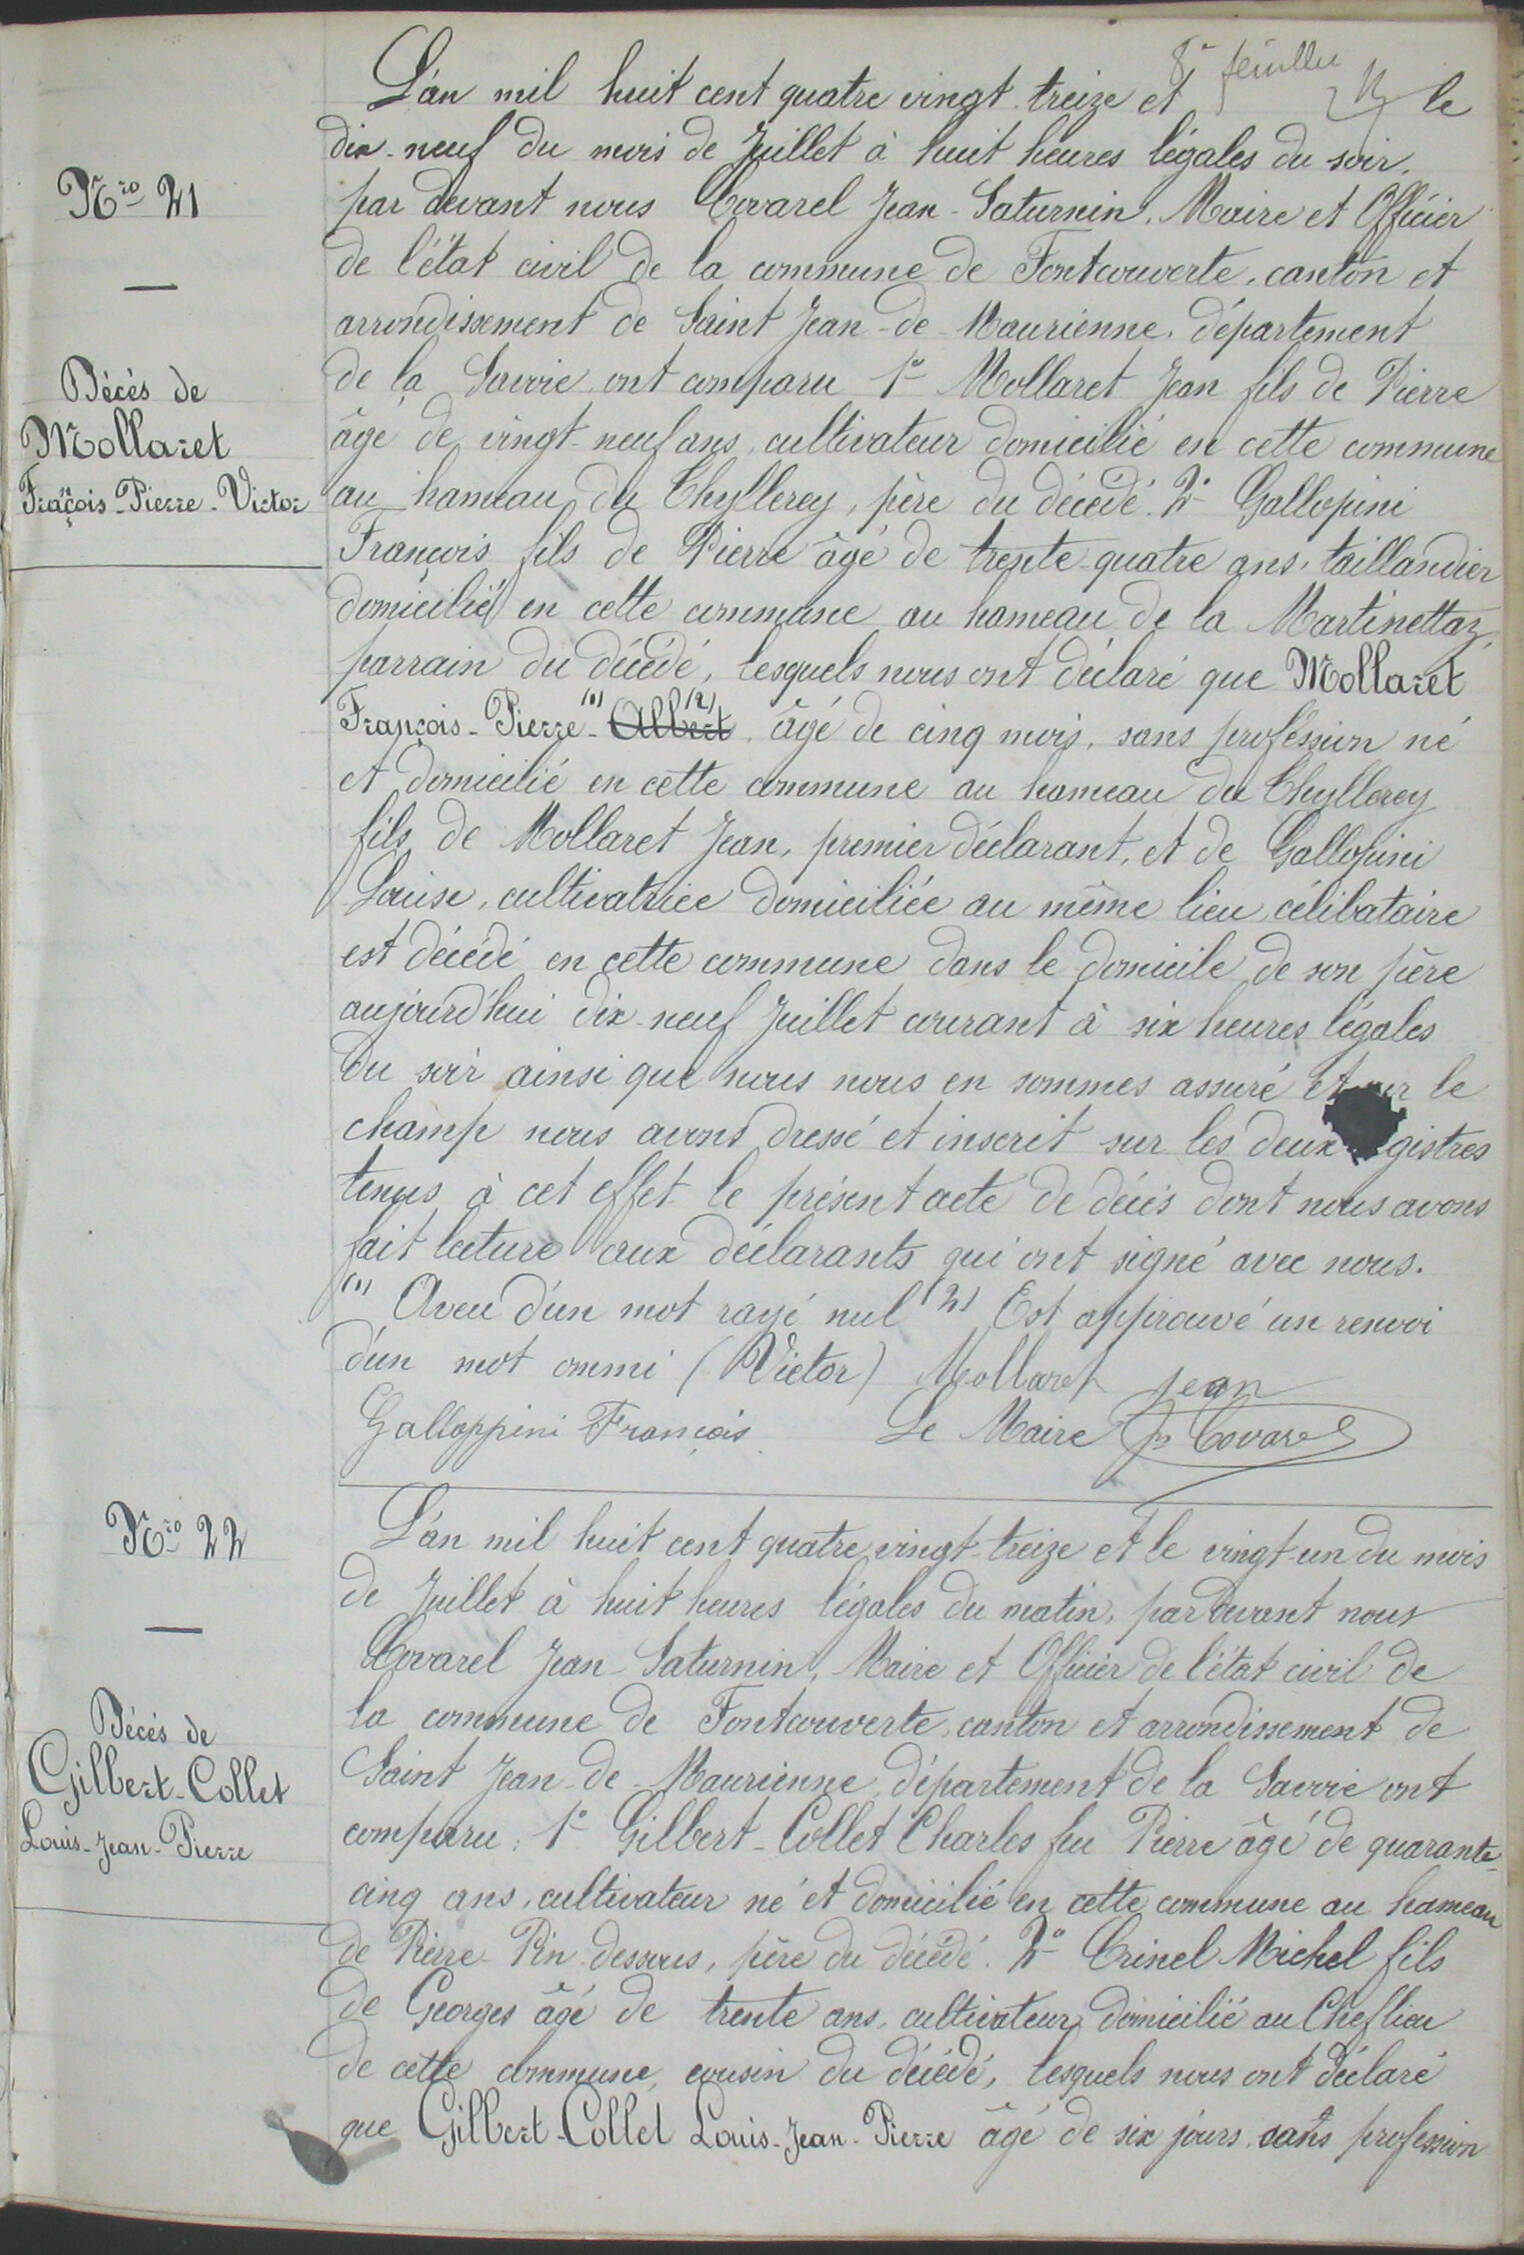 8e feuillet
L'an mil huit cent quatre vingt treize et le
dix-neuf du mois de Juillet à huit heures légales du soir,
par devant nous Covarel Jean-Saturnin, Maire et Officier
de l'état civil de la commune de Fontcouverte, canton et
arrondissement de Saint Jean-de-Maurienne, département
de la Savoie ont comparu 1° Mollaret Jean fils de Pierre
âgé de vingt-neuf ans, cultivateur domicilié en cette commune
au hameau du Thyllerey, père du décédé. 2° Gallopini
François fils de Pierre âgé de trente-quatre ans, taillandier
domicilié en cette commune au hameau de la Martinettaz,
parrain du décédé, lesquels nous ont déclaré que Mollaret
François-Pierre-(1) Albert (2), âgé de cinq mois, sans profession né
et domicilié en cette commune au hameau du Thyllerey
fils de Mollaret Jean, premier déclarant, et de Gallopini
Louise, cultivatrice domiciliée au même lieu, célibataire
est décédé en cette commune dans le domicile de son père
aujourd'hui dix-neuf Juillet courant à six heures légales
du soir ainsi que nous nous en sommes assuré et sur le
champ nous avons dressé et inscrit sur les deux gistres
tenus à cet effet le présent acte de décès dont nous avons
fait lecture aux déclarants qui ont signé avec nous.
(1) Aveu d'un mot rayé nul (2) Est approuvé un renvoi
d'un mot ommi (Victor) Mollaret Jean
Galloppini François Le Maire Jn Covarel
Nro 21
Décès de
Mollaret
François-Pierre-Victor
L'an mil huit cent quatre vingt-treize et le vingt-un du mois
de Juillet à huit heures légales du matin, par devant nous
Covarel Jean-Saturnin, Maire et Officier de l'état civil de
la commune de Fontcouverte, canton et arrondissement de
Saint Jean-de-Maurienne, département de la Savoie ont
comparu: 1° Gilbert-Collet Charles feu Pierre âgé de quarante-
cinq ans, cultivateur né et domicilié en cette commune au hameau
de Pierre-Pin dessous, père du décédé. 2° Crinel Michel fils
de Georges âgé de trente ans, cultivateur domicilié au Cheflieu
de cette commune, cousin du décédé, lesquels nous ont déclaré
que Gilbert-Collet Louis-Jean-Pierre âgé de six jours, sans profession
Nro 22
Décès de
Gilbert-Collet
Louis-Jean-Pierre